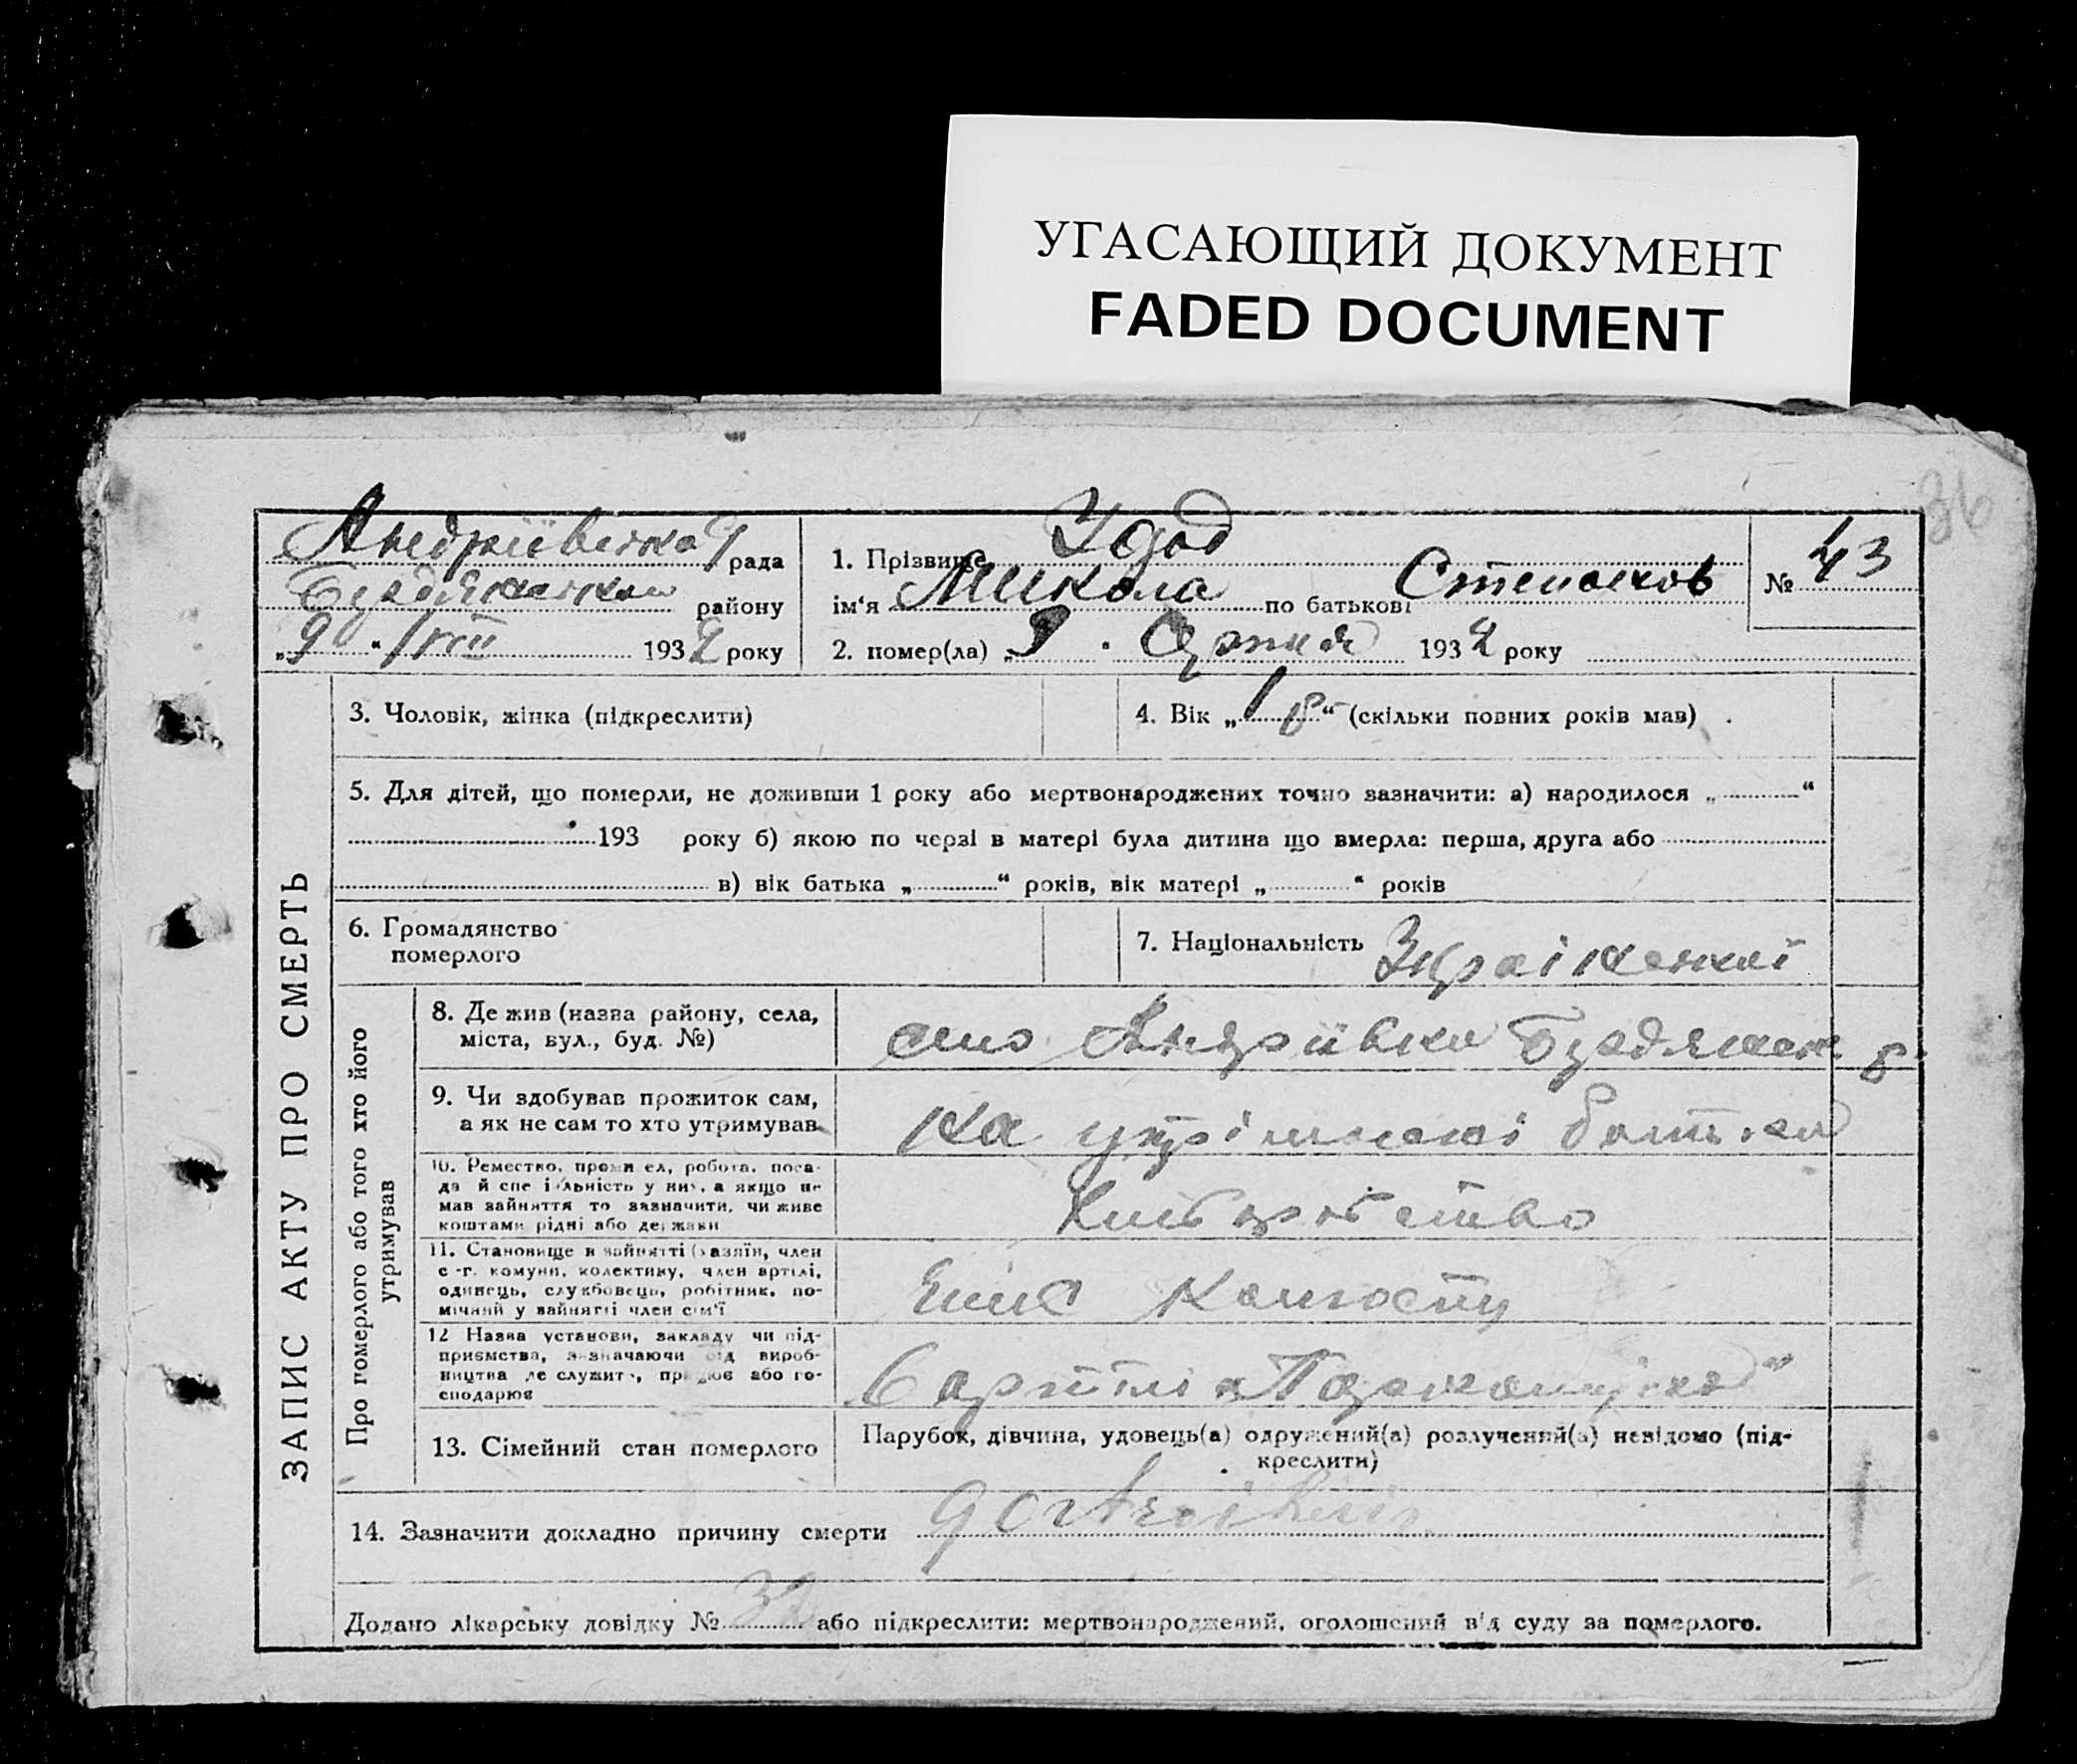 УГАСАЮЩИЙ ДОКУМЕНТ
FADED DOCUMENT
36
Андріївська рада
Бердянського району
„9“ VIII 1932 року
1. Прізвище Удод
ім‘я Микола по батькові Степанов
№ 43
2. помер(ла) „9 Серпня 1932 року
ЗАПИС АКТУ ПРО СМЕРТЬ
3. Чоловік, жінка (підкреслити)
4. Вік „1 р“ (скільки повних років мав)
5. Для дітей, що померли, не доживши 1 року або мертвонароджених точно зазначити: а) народилося „ “
193 року б) якою по черзі в матері була дитина що вмерла: перша, друга або
в) вік батька „ “ років, вік матері „ “ років
6. Громадянство померлого
7. Національність Української
Про померлого або того хто його утримував
8. Де жив (назва району, села, міста, вул., буд. №)
село Андріївка Бердянськ р
9. Чи здобував прожиток сам, а як не сам то хто утримував
на утріманні батька
10. Ремество, промисел, робота, посада й спеціяльність у них, а якщо не мав зайняття то зазначити, чи живе коштами рідні або держави
Хліборобство
11. Становище в зайнятті (хазяїн, член с.-г. комуни, колективу, член артілі, одинець, службовець, робітник, помічний у зайнятті член сім‘ї
Член Колгоспу
12 Назва установи, закладу чи підприємства, зазначаючи від виробництва де служить, працює або господарює
в артілі „
13. Сімейний стан померлого
Парубок, дівчина, удовець(а) одружений(а) розлучений(а) невідомо (підкреслити)
14. Зазначити докладно причину смерти
Додано лікарську довідку № 32 або підкреслити: мертвонароджений, оголошений від суду за померлого.